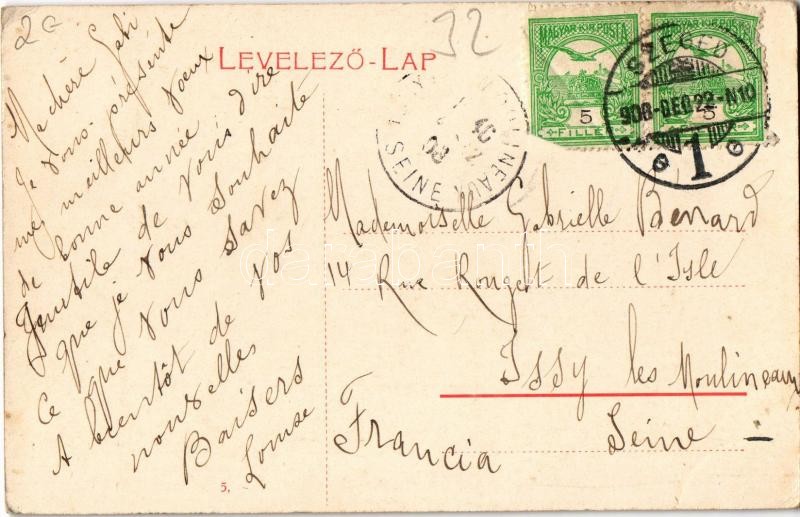 2a
32
LEVELEZŐ-LAP
MAGYAR KIR. POSTA
5
FILLÉR
MAGYAR KIR. POSTA
5
SZEGED
908-DEC 22-N10
1
SEINE
Ma chère Gabi
Je vous présente
mes meilleurs vœux
de bonne année.
Inutile de vous dire
que je vous souhaite
ce que vous savez
A bientôt de vos
nouvelles
Baisers
Louise
Mademoiselle Gabrielle Benard
14 Rue Rouget de l'Isle
Issy les Moulineaux
Seine
Francia
5.
darabanth